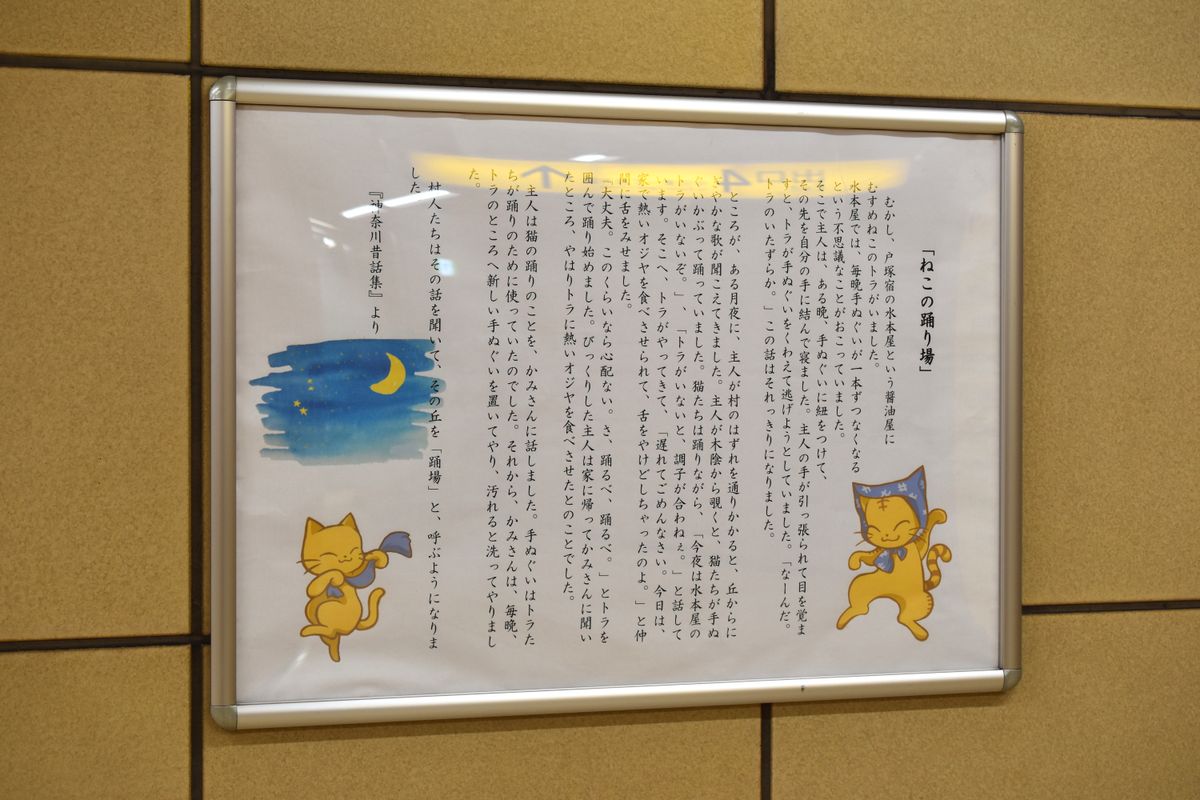 「ねこの踊り場」
むかし、戸塚宿の水本屋という醤油屋に
むすめねこのトラがいました。
水本屋では、毎晩手ぬぐいが一本ずつなくなる
という不思議なことがおこっていました。
そこで主人は、ある晩、手ぬぐいに紐をつけて、
その先を自分の手に結んで寝ました。主人の手が引っ張られて目を覚ま
すと、トラが手ぬぐいをくわえて逃げようとしていました。「なーんだ。
トラのいたずらか。」この話はそれっきりになりました。
ところが、ある月夜に、主人が村のはずれを通りかかると、丘からに
ぎやかな歌が聞こえてきました。主人が木陰から覗くと、猫たちが手ぬ
ぐいかぶって踊っていました。猫たちは踊りながら、「今夜は水本屋の
トラがいないぞ。」、「トラがいないと、調子が合わねぇ。」と話して
います。そこへ、トラがやってきて、「遅れてごめんなさい。今日は、
家で熱いオジヤを食べさせられて、舌をやけどしちゃったのよ。」と仲
間に舌をみせました。
「大丈夫。このくらいなら心配ない。さ、踊るべ、踊るべ。」とトラを
囲んで踊り始めました。びっくりした主人は家に帰ってかみさんに聞い
たところ、やはりトラに熱いオジヤを食べさせたとのことでした。
主人は猫の踊りのことを、かみさんに話しました。手ぬぐいはトラた
ちが踊りのために使っていたのでした。それから、かみさんは、毎晩、
トラのところへ新しい手ぬぐいを置いてやり、汚れると洗ってやりまし
た。
村人たちはその話を聞いて、その丘を「踊場」と、呼ぶようになりま
した。
『神奈川昔話集』より
出口4